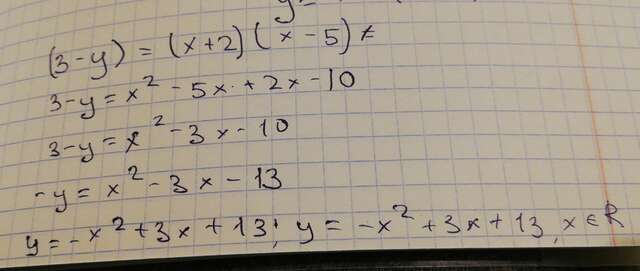 (3-y) = (x+2)(x-5) ≠
3-y = x² - 5x + 2x - 10
3-y = x² - 3x - 10
-y = x² - 3x - 13
y = -x² + 3x + 13; y = -x² + 3x + 13, x ∈ R